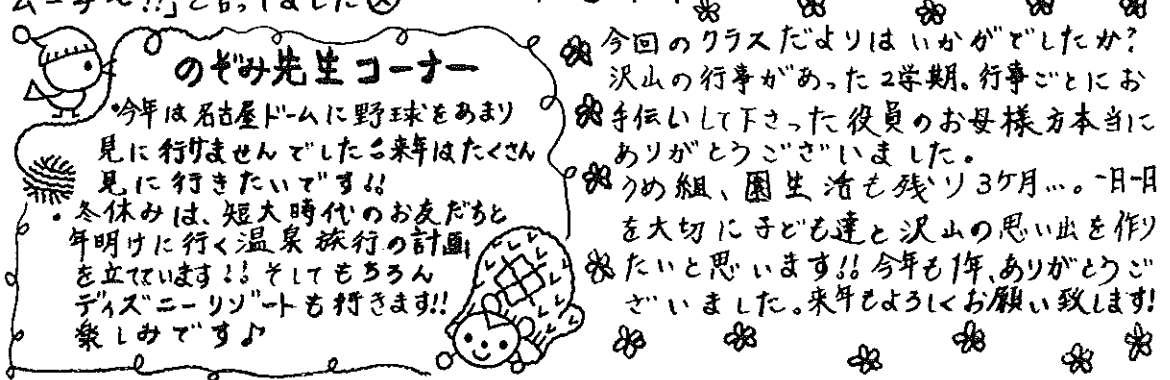 と言ってました
のぞみ先生コーナー
・今年は名古屋ドームに野球をあまり
見に行けませんでした 来年はたくさん
見に行きたいです!!
・冬休みは、短大時代のお友だちと
年明けに行く温泉旅行の計画
を立てています!! そしてもちろん
ディズニーリゾートも行きます!!
楽しみです♪
今回のクラスだよりはいかがでしたか?
沢山の行事があった2学期。行事ごとにお
手伝いして下さった役員のお母様方本当に
ありがとうございました。
うめ組、園生活も残り3ケ月…。一日一日
を大切に子ども達と沢山の思い出を作り
たいと思います!! 今年も1年、ありがとうご
ざいました。来年もよろしくお願い致します!